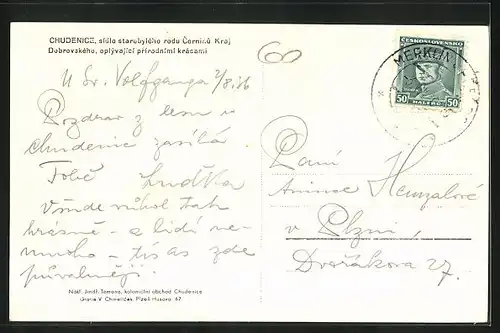 CHUDENICE, sídlo starobylého rodu Černínů Kraj
Dobrovského, oplývající přírodními krásami
U Sv. Volfganga 2/8. 36
Pozdrav z lesů v
Chudenic zasílá
Tobě Luďka
Všude nikol tak
krásně - a lidí ne-
mnoho - zde
půvalněji.
Nákl. Jindř. Tomana, koloniální obchod Chudenice
Unione V. Chmelíček, Plzeň Husova 42
ČESKOSLOVENSKO
50 HALÉŘŮ 50
MERKLÍN
60
Paní
Anince Henzalové
v Plzni,
Dvořákova 27.